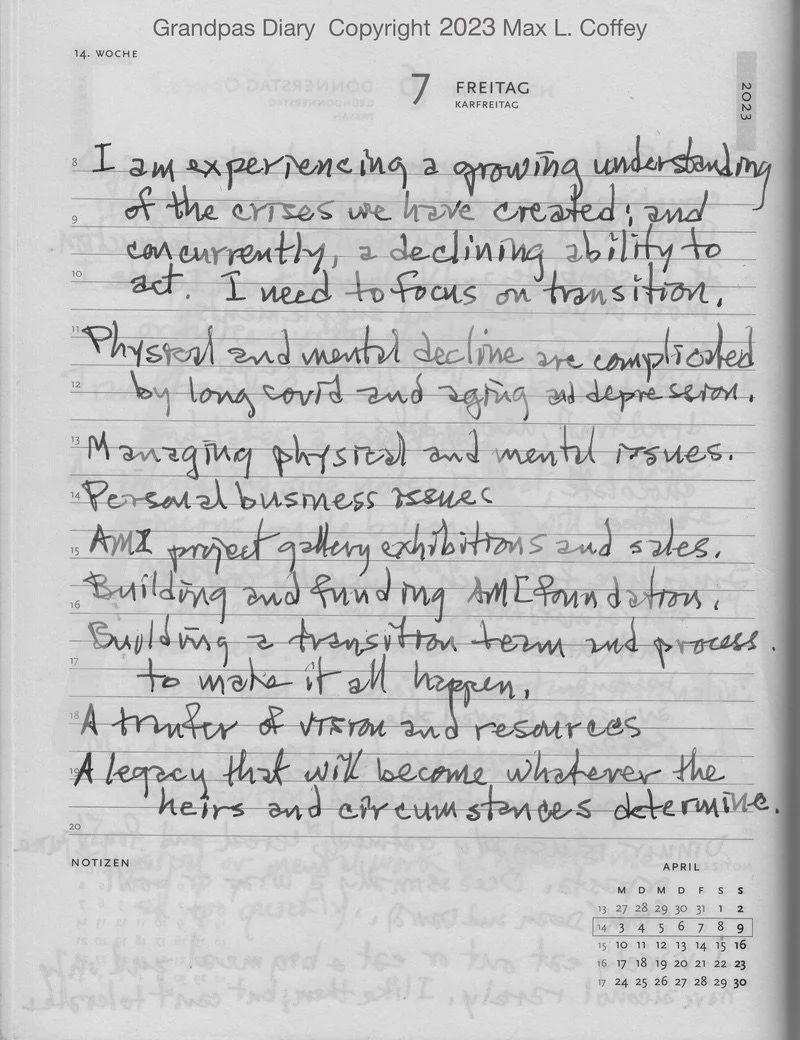 Grandpas Diary Copyright 2023 Max L. Coffey
14. WOCHE
7 FREITAG
KARFREITAG
2023
8 I am experiencing a growing understanding
of the crises we have created; and
9
concurrently, a declining ability to
10
act. I need to focus on transition.
11 Physical and mental decline are complicated
12 by long covid and aging and depression.
13 Managing physical and mental issues.
14 Personal business issues
15 AMI project gallery exhibitions and sales.
16 Building and funding AMI foundation.
Building a transition team and process.
17
to make it all happen.
18 A tranfer of vision and resources
19 A legacy that will become whatever the
heirs and circumstances determine.
20
NOTIZEN
APRIL
M D M D F S S
13 27 28 29 30 31 1 2
14 3 4 5 6 7 8 9
15 10 11 12 13 14 15 16
16 17 18 19 20 21 22 23
17 24 25 26 27 28 29 30